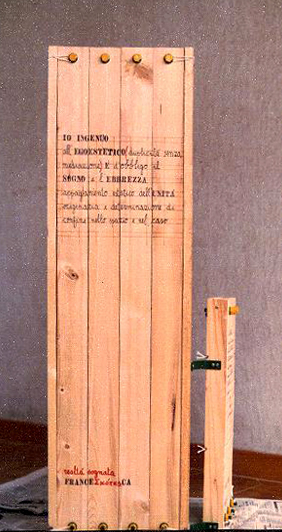 IO INGENUO
all'EGOESTETICO (duplicità senza
mediazione) E' d'obbligo il
SOGNO e l'EBBREZZA
appagamento estatico dell'UNITÀ
originaria e determinazione di
confine nello spazio e nel caso
realtà sognata
FRANCE CA